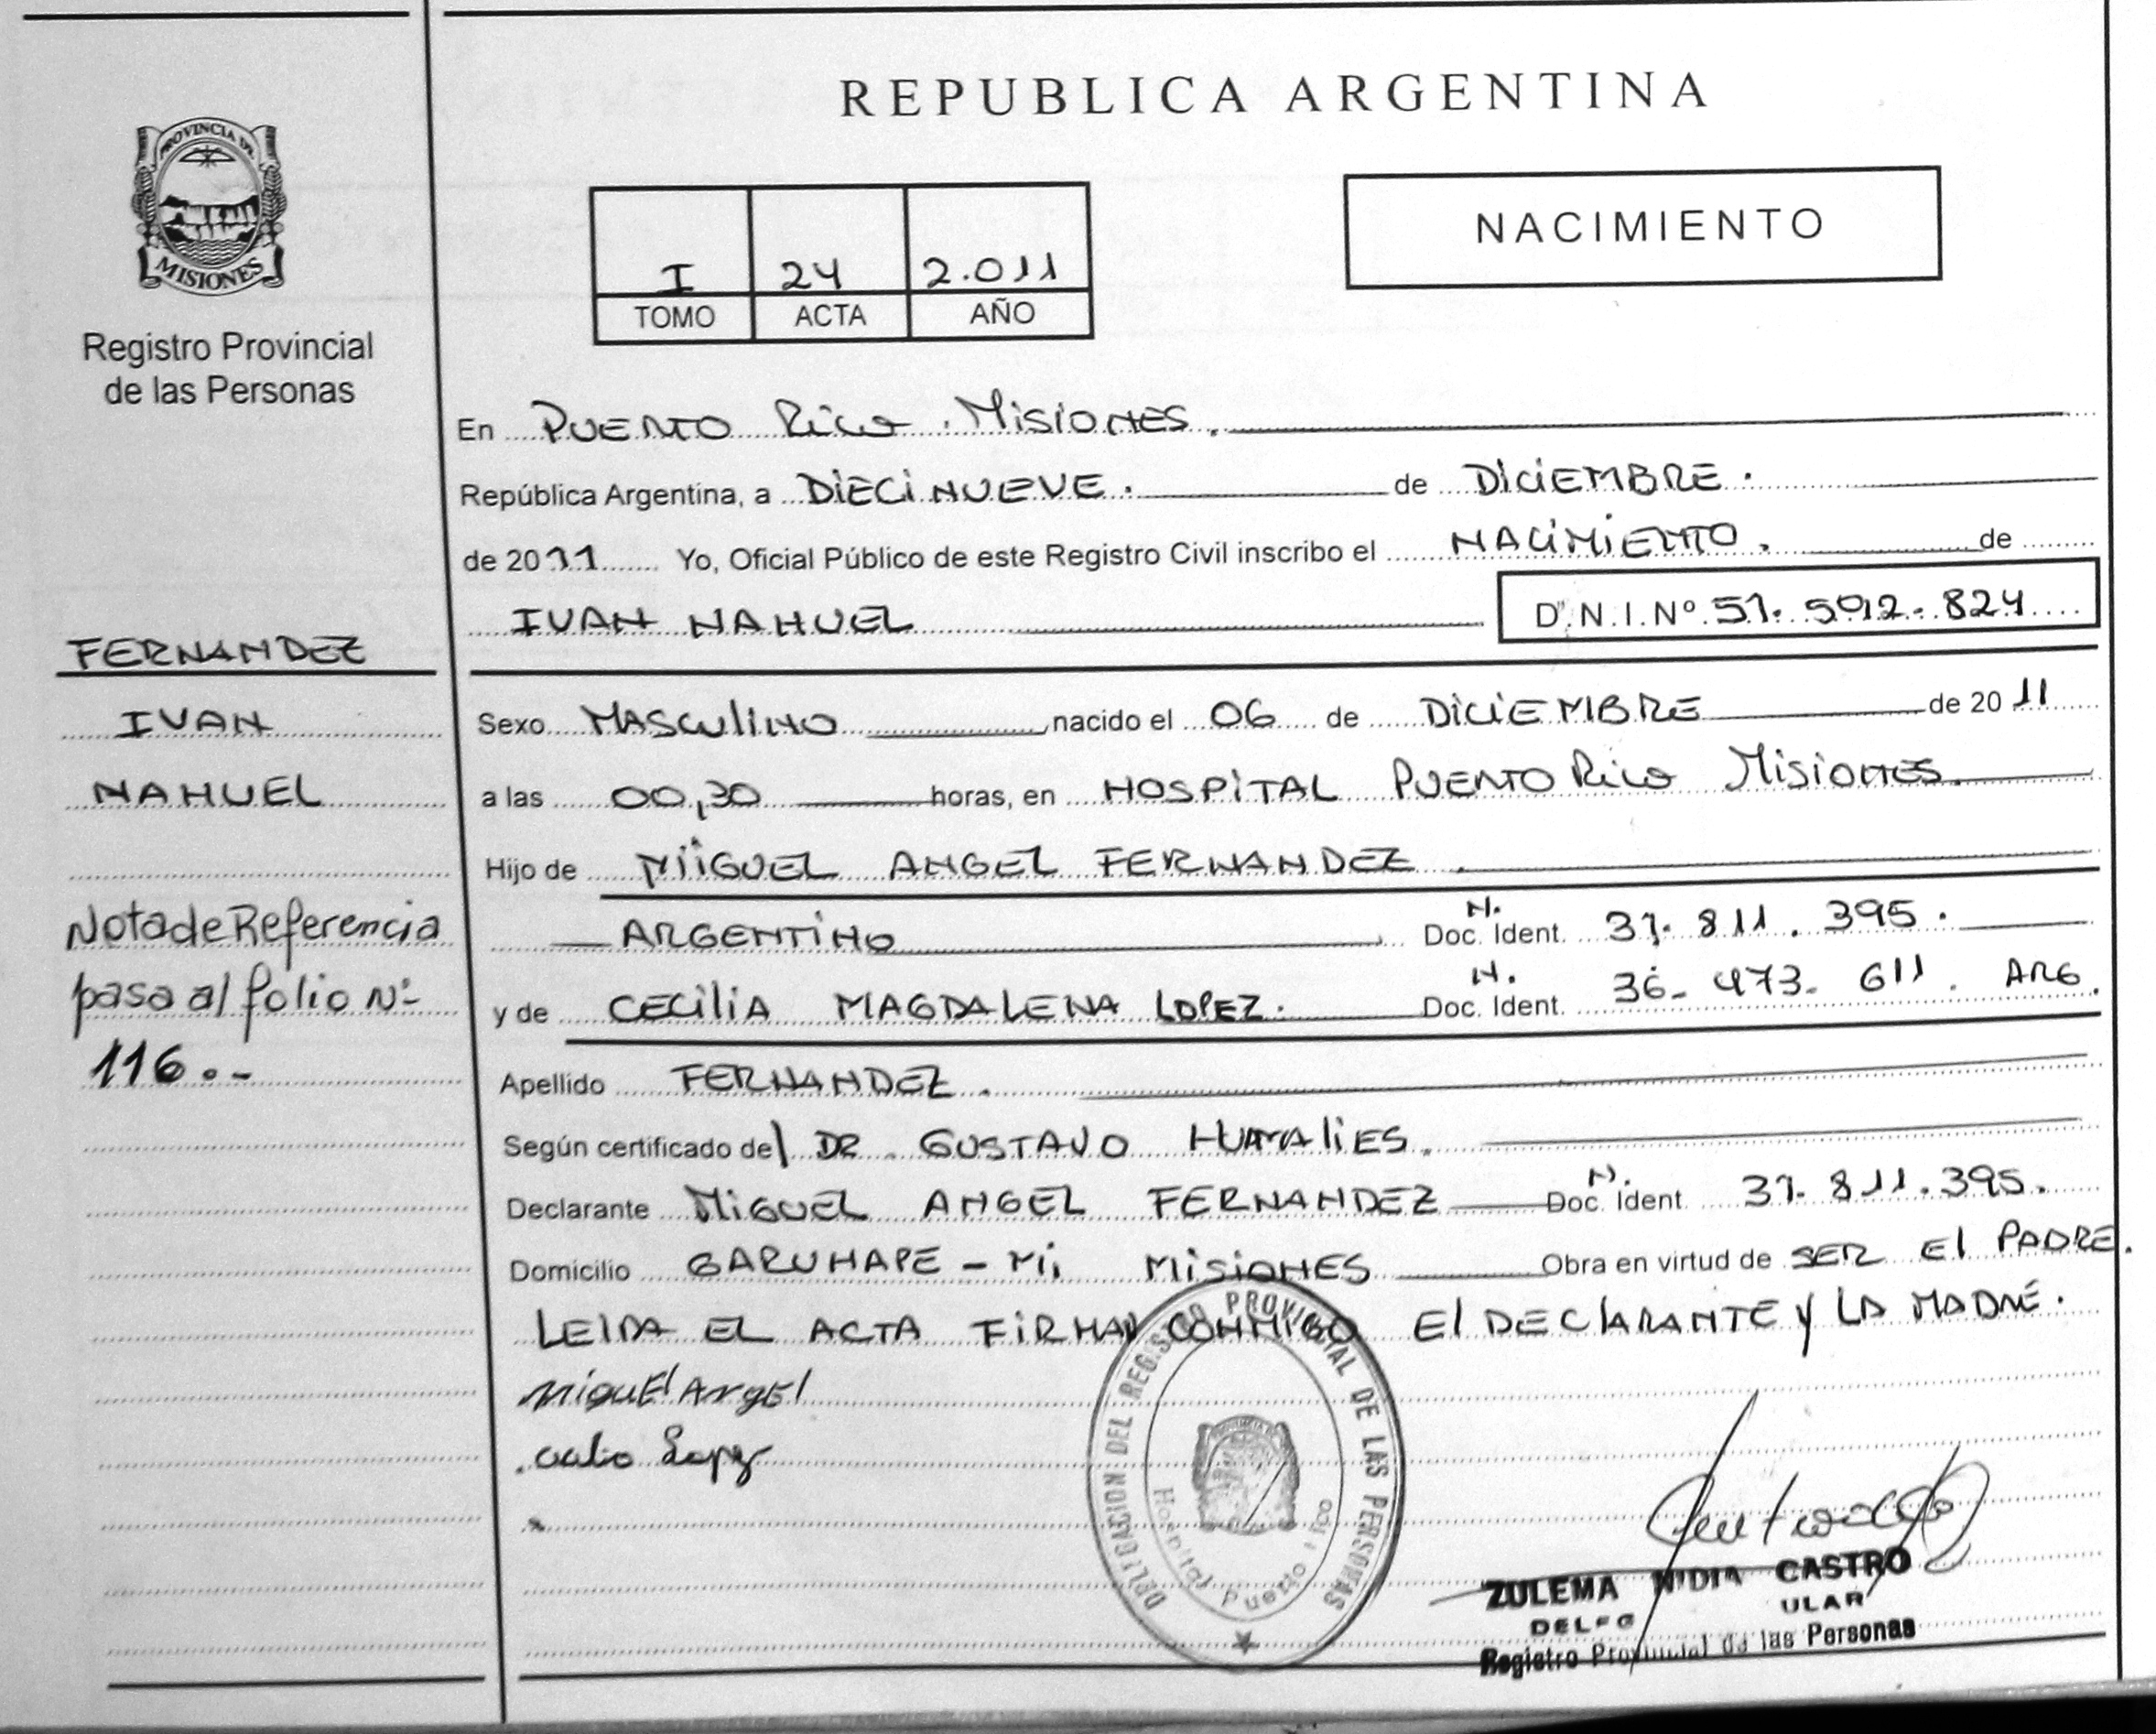 REPUBLICA ARGENTINA
PROVINCIA DE
MISIONES
Registro Provincial
de las Personas
I 24 2.011
TOMO ACTA AÑO
NACIMIENTO
En PUERTO Rico . Misiones.
República Argentina, a DiECiNUEVE. de DiCiEMBRE.
de 2011 Yo, Oficial Público de este Registro Civil inscribo el NACiMiENTO. de
IVAN NAHUEL D.N.I.Nº 51.502.824
FERNANDEZ
IVAN
NAHUEL
Nota de Referencia
pasa al folio Nº
116.-
Sexo MASculiNO nacido el 06 de DiCiEMBRE de 2011
a las 00,30 horas, en HOSPiTAL PUERTO Rico Misiones.
Hijo de MiGUEL ANGEL FERNANDEZ.
ARGENTiNO N. Doc. Ident. 37.811.395.
y de CECiliA MAGDALENA LOPEZ. N. Doc. Ident. 36-473-611. ARG.
Apellido FERNANDEZ.
Según certificado del DR. GUSTAVO
Declarante MiGUEL ANGEL FERNANDEZ N. Doc. Ident. 37.811.395.
Domicilio GARUHAPE - Mi MiSiONES Obra en virtud de SER El PADRE.
LEIDA EL ACTA FiRMAN CONMIGO El DEClARANTE y LA MADRE.
MiguEl AngEl
Lopez
DELEGACION DEL REGISTRO PROVINCIAL DE LAS PERSONAS
Hospital Puerto Rico
ZULEMA NIDIA CASTRO
Registro Provincial de las Personas